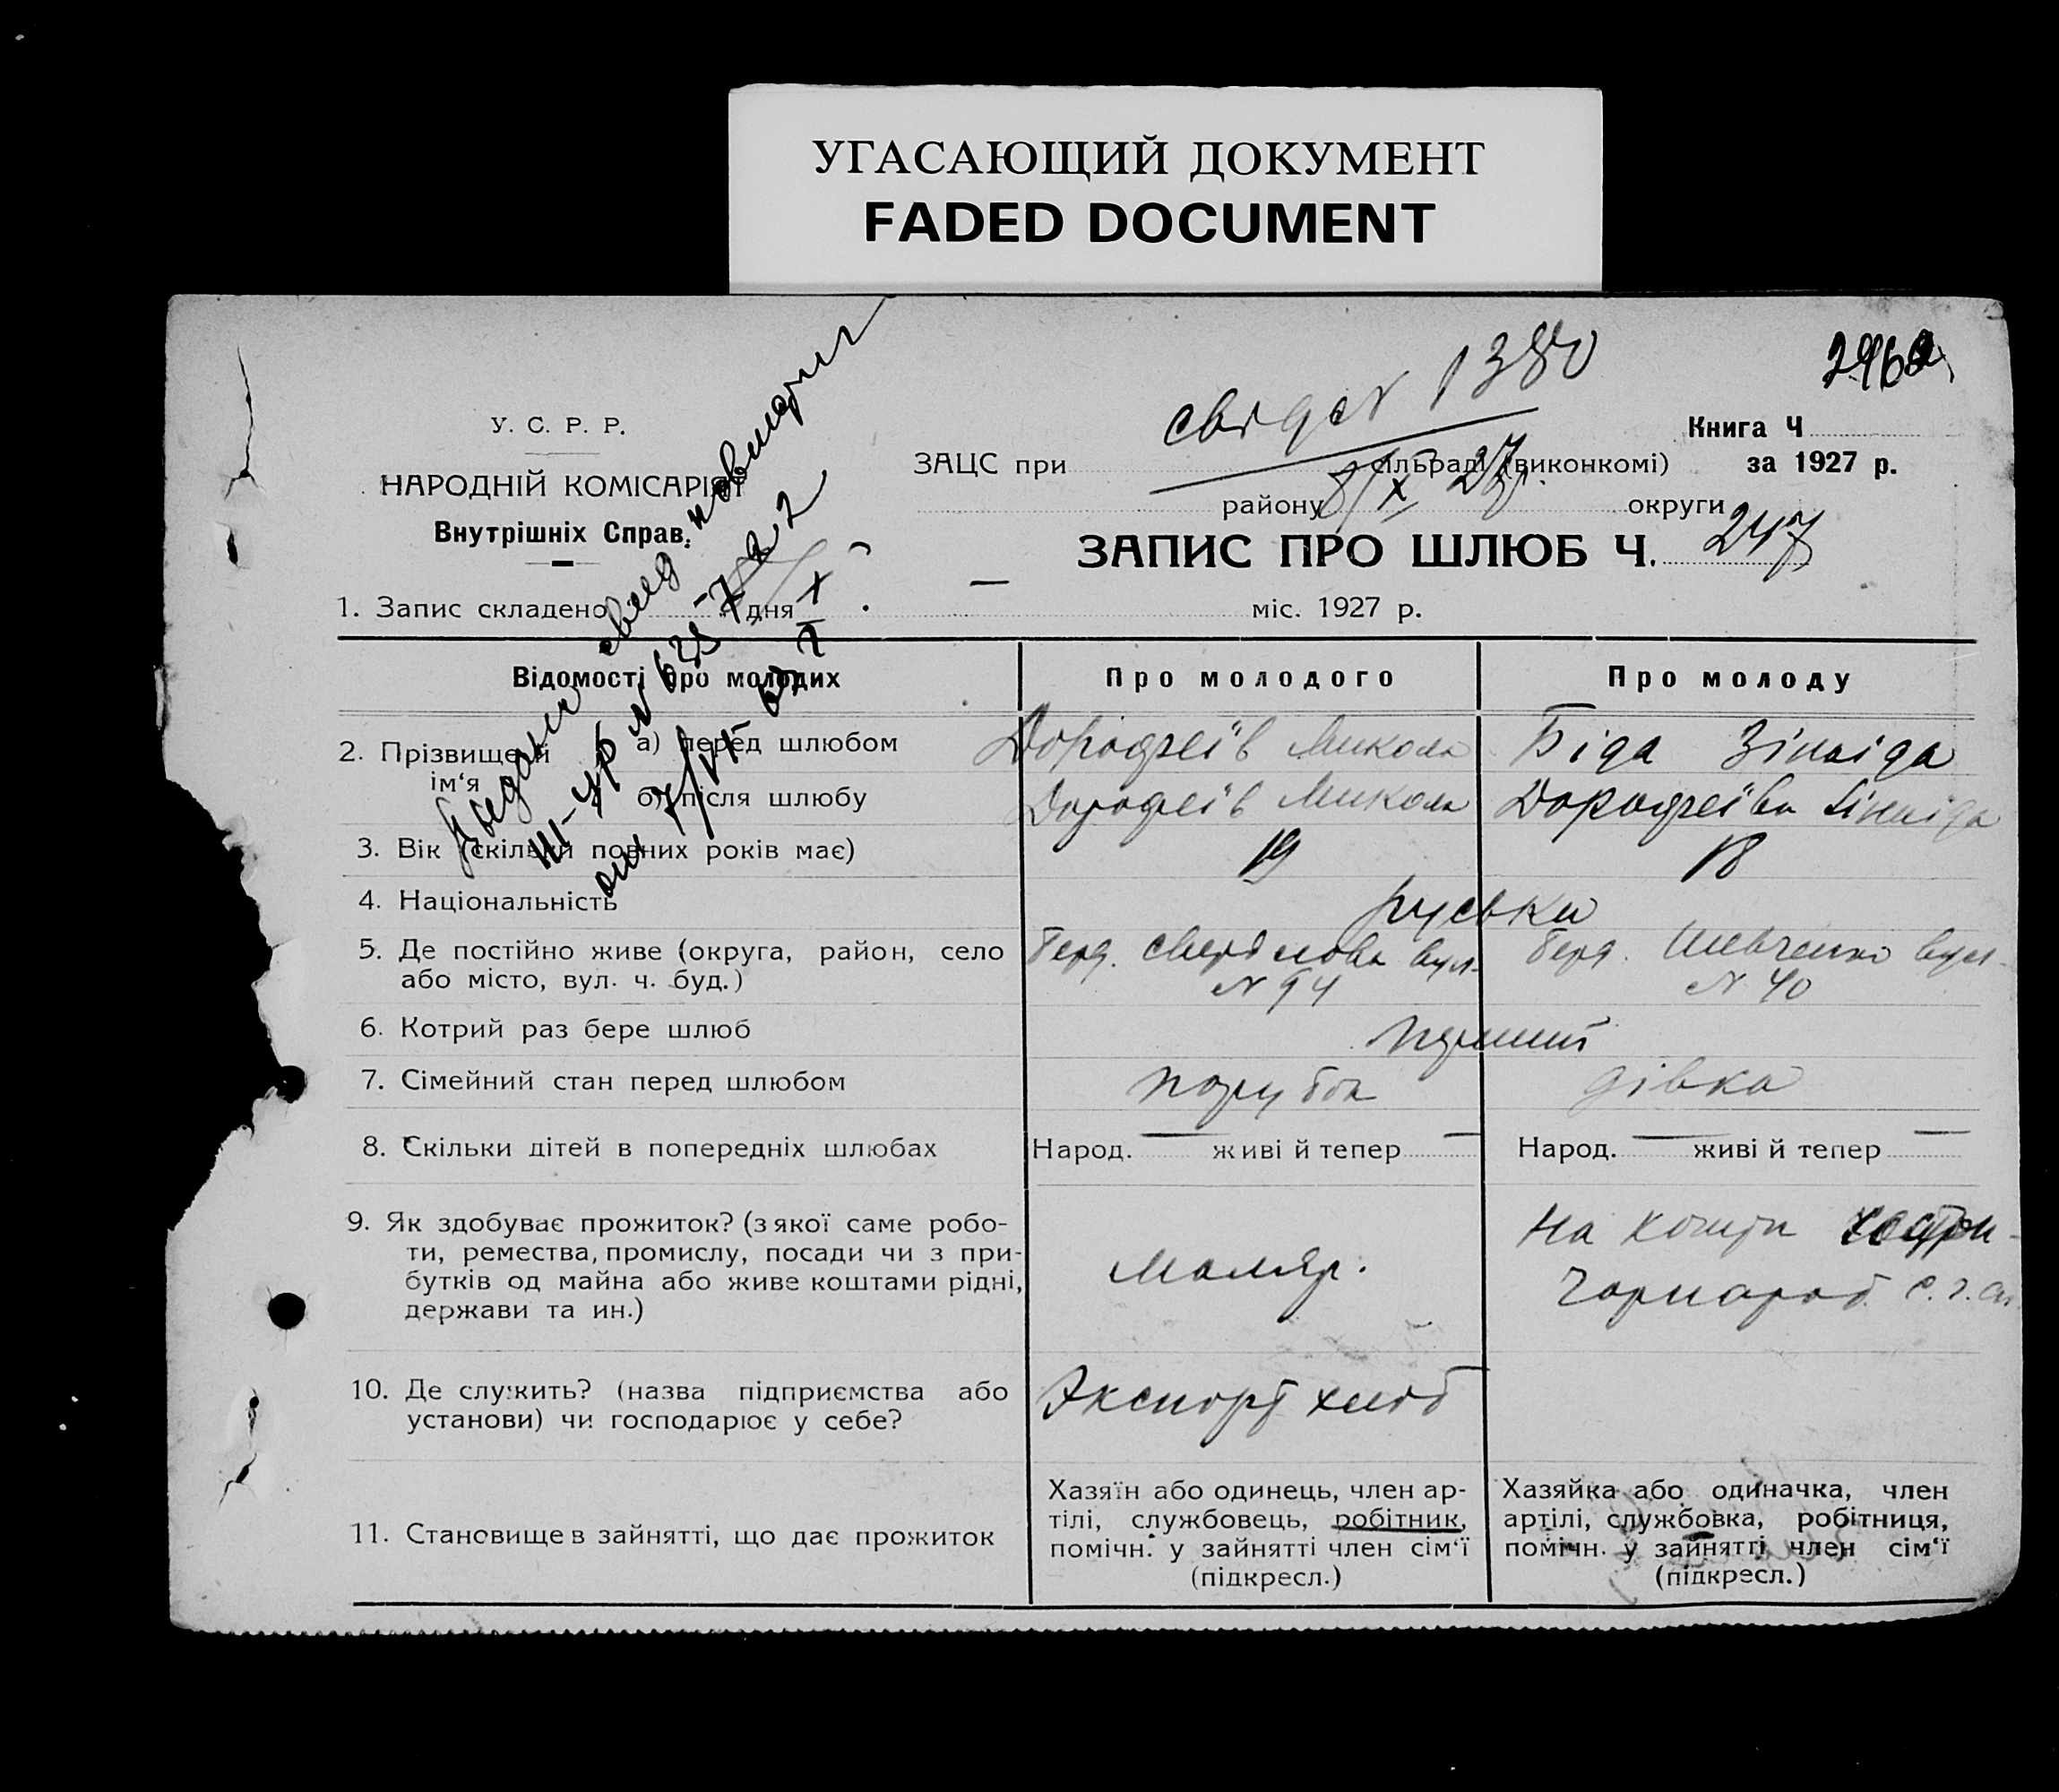 УГАСАЮЩИЙ ДОКУМЕНТ
FADED DOCUMENT
свідот 1380
8/X 27 р.
У. С. Р. Р.
НАРОДНІЙ КОМІСАРІЯТ
Внутрішніх Справ.
Книга Ч
за 1927 р.
ЗАЦС при сільраді (виконкомі)
району округи
ЗАПИС ПРО ШЛЮБ Ч. 247
1. Запис складено дня міс. 1927 р.
Видано свид повторн
III-УР № 635
Відомості про молодих
Про молодого
Про молоду
2. Прізвище й ім‘я
а) перед шлюбом
Дорофеїв Микола
Біда Зінаіда
б) після шлюбу
Дорофеїв Микола
Дорофеїва Зінаіда
3. Вік (скільки повних років має)
19
18
4. Національність
руські
5. Де постійно живе (округа, район, село
або місто, вул. ч. буд.)
Берд. Свердлова вул.
N 94
Берд. Шевченко вул.
N 40
6. Котрий раз бере шлюб
перший
7. Сімейний стан перед шлюбом
парубок
дівка
8. Скільки дітей в попередніх шлюбах
Народ. — живі й тепер —
Народ. — живі й тепер —
9. Як здобуває прожиток? (з якої саме робо-
ти, ремества, промислу, посади чи з при-
бутків од майна або живе коштами рідні,
держави та ин.)
Маляр.
На кошти
Чорнароб.
10. Де служить? (назва підприємства або
установи) чи господарює у себе?
Экспорт хліб
11. Становище в зайнятті, що дає прожиток
Хазяїн або одинець, член ар-
тілі, службовець, робітник,
помічн. у зайнятті член сім‘ї
(підкресл.)
Хазяйка або одиначка, член
артілі, службовка, робітниця,
помічн. у зайнятті член сім‘ї
(підкресл.)